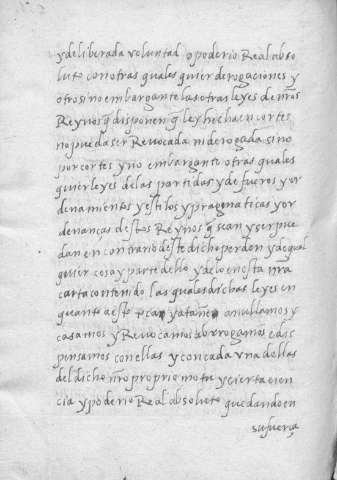 y deliberada voluntad o poderio Real abso
luto con otras quales quier derogaciones y
otrosi no embargante las otras leyes de nr̃os
Reynos q̃ disponen q̃ ley hecha en cortes
no pueda ser Revocada ni derogada sino
por cortes y no embargante otras quales
quier leyes de las partidas y de fueros y or
denamientos y estilos y pragmaticas y or
denanças destos Reynos q̃ sean y ser pue
dan en contrario deste dicho perdon y de qual
quier cosa y parte dello y de lo en esta nr̃a
carta contenido las quales dichas leyes en
quanto a esto y atañe anullamos y
casamos y Revocamos abrrogamos e dis
pensamos con ellas y con cada vna dellas
del dicho nr̃o proprio motu y cierta cien
cia y poderio Real absoluto quedando en
su fuerça